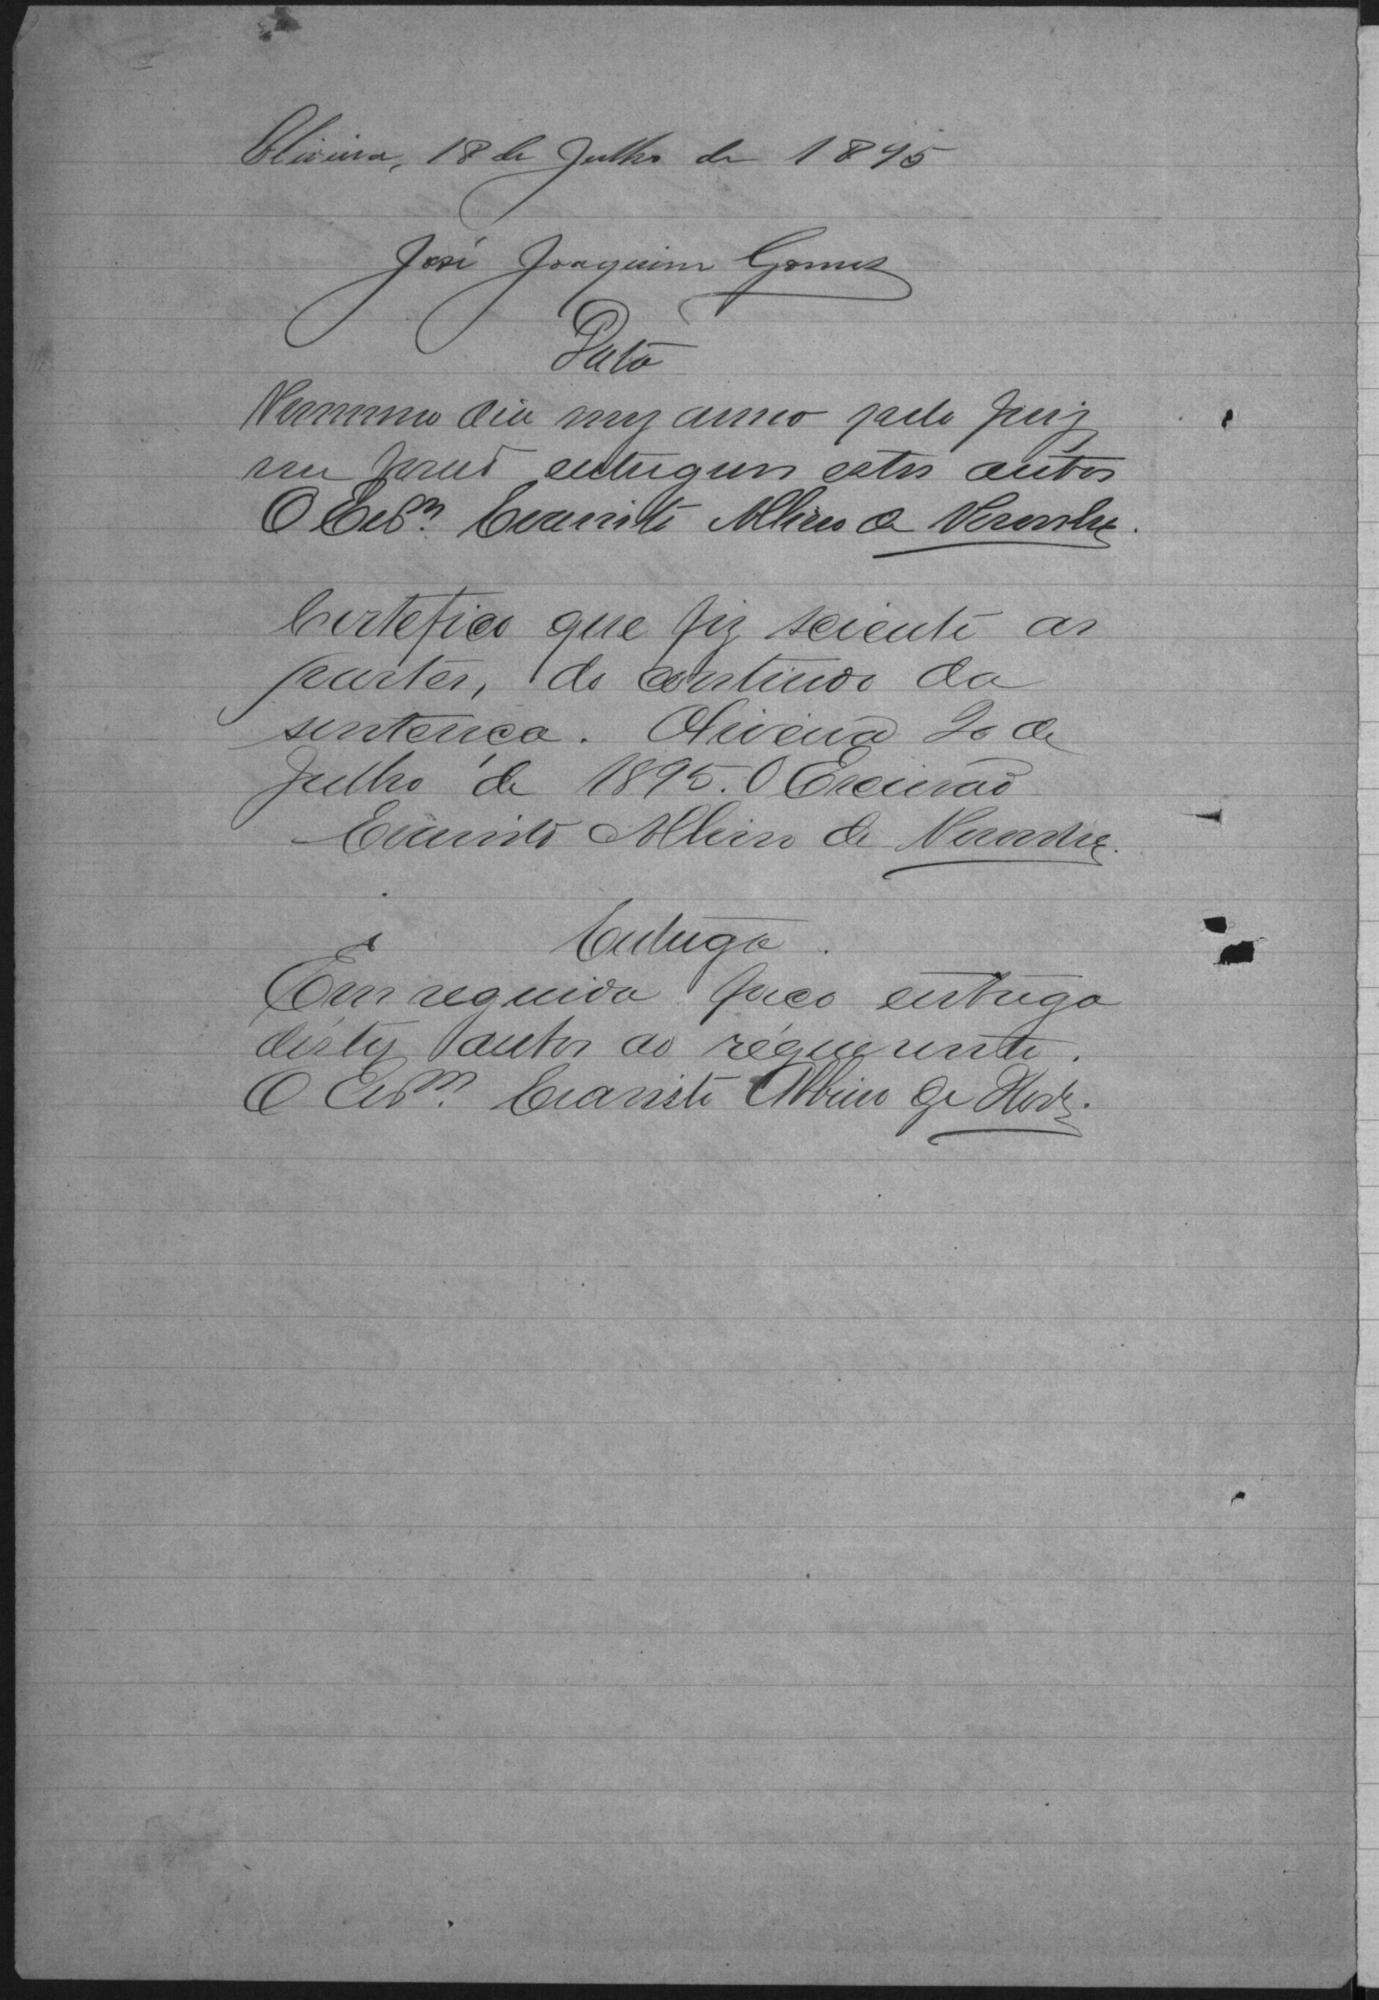 Oliveira, 18 de Julho de 1895
José Joaquim Gomes
Data
No mesmo dia mez anno pelo Juiz
me forão entregues estes autos
O Escr.m Evaristo Albino de
Certefico que fiz sciente as
partes, do contiudo da
sentença. Oliveira 20 de
Julho de 1895. O Escrivão
Evaristo Albino de
Entrega
Em seguida faço entrega
destes autos ao requerente.
O Escr.m Evaristo Albino de